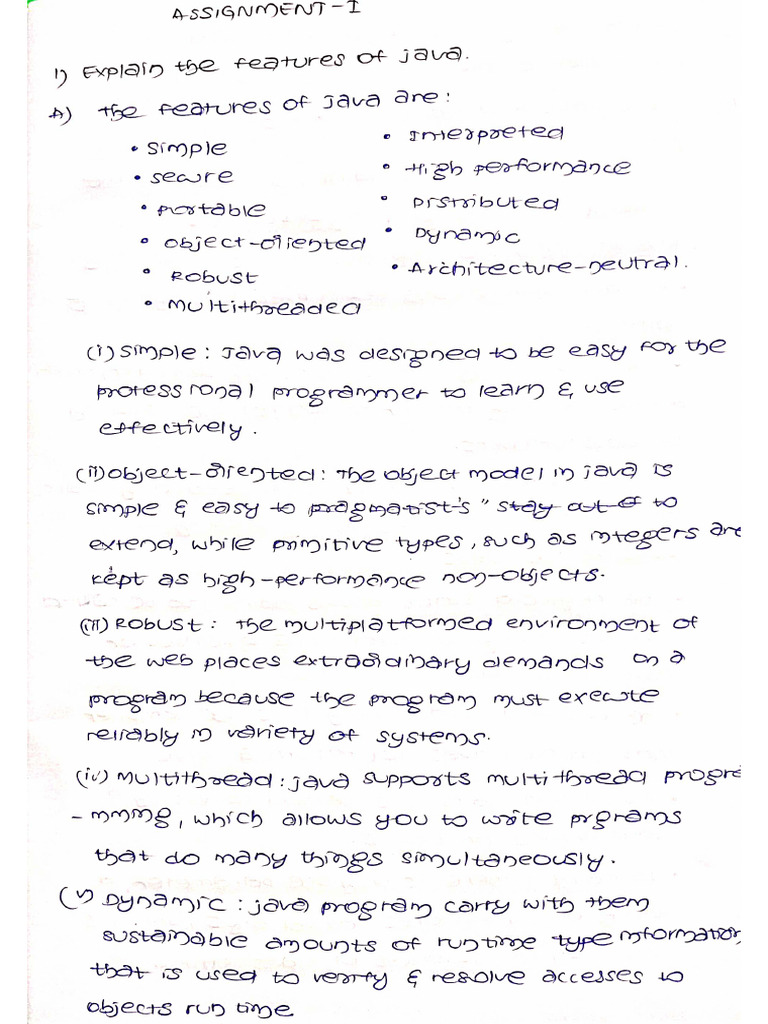 ASSIGNMENT-I
1) Explain the features of java.
A) The features of java are:
• Simple
• Secure
• Portable
• Object-oriented
• Robust
• Multithreaded
• Interpreted
• High performance
• Distributed
• Dynamic
• Architecture-neutral.
(i) Simple: Java was designed to be easy for the
professional programmer to learn & use
effectively.
(ii) Object-oriented: The object model in java is
simple & easy to pragmatist's "stay out of to
extend, while primitive types, such as integers are
kept as high-performance non-objects.
(iii) Robust: The multiplatformed environment of
the web places extraordinary demands on a
program because the program must execute
reliably in variety of systems.
(iv) Multithread: java supports multithread progra
-mmmg, which allows you to write prgrams
that do many things simultaneously.
(v) Dynamic: java program carry with them
sustainable amounts of runtime type information
that is used to verify & resolve accesses to
objects run time